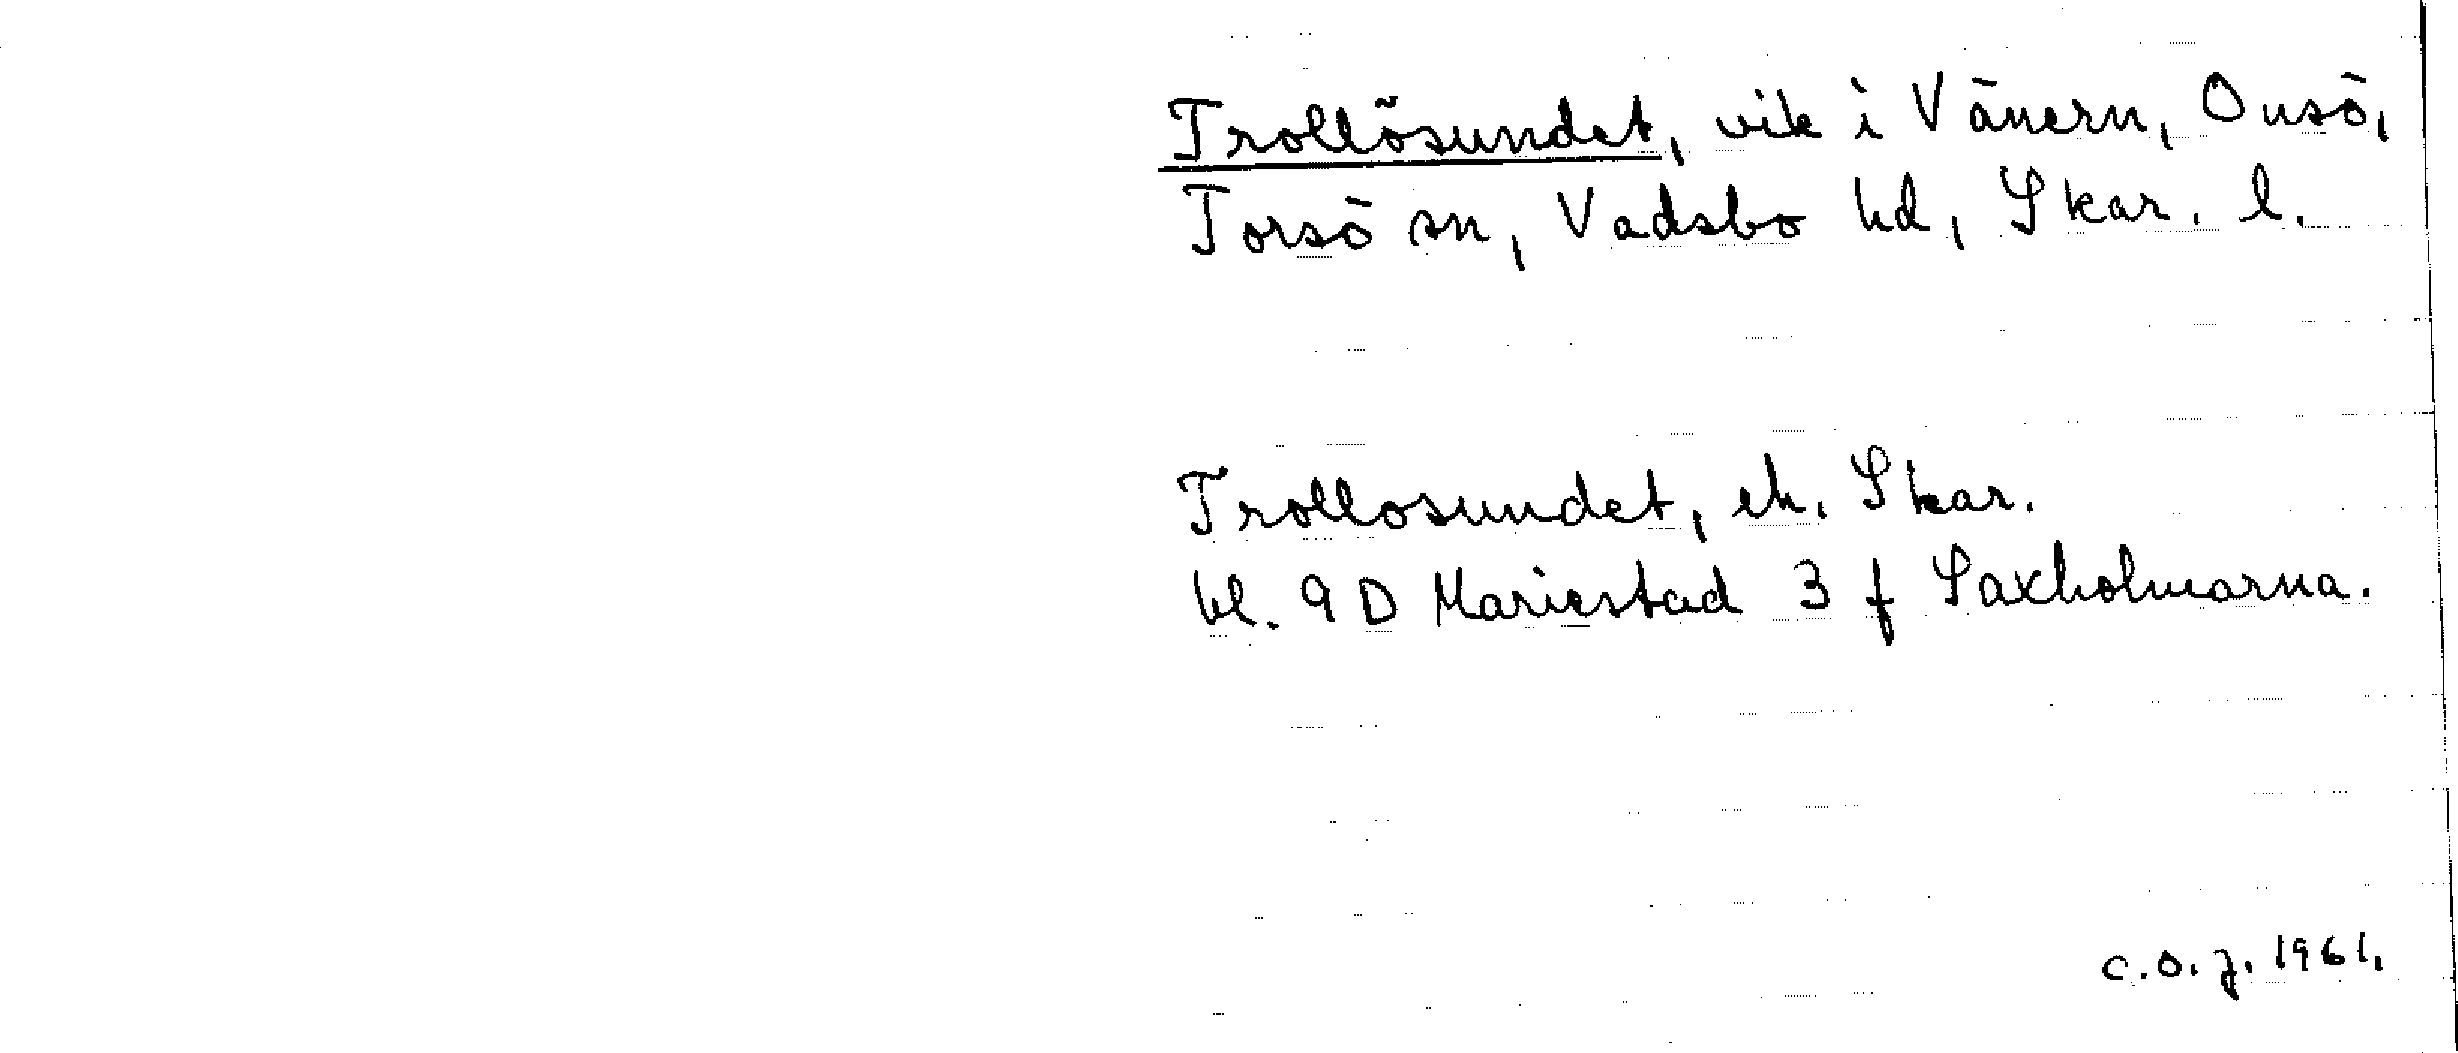 Trollösundet, vik i Vänern, Onsö,
Torsö sn, Vadsbo hd, Skar. l.
Trollosundet, ek. Skar.
bl. 9 D Mariestad 3 f Saxholmarna.
C.O.J. 1961.